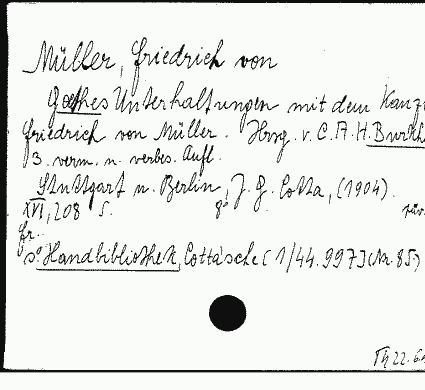 Müller, Friedrich von
Goethes Unterhaltungen mit dem
Friedrich von Müller. Hrsg. v. C. A. H. Burkh
3. verm. u. verbes. Aufl.
Stuttgart u. Berlin, J. G. Cotta, (1904).
XVI, 208 S. 8°
fr.
s. Handbibliothek, Cotta'sche [1/44.997] (Nr. 85)